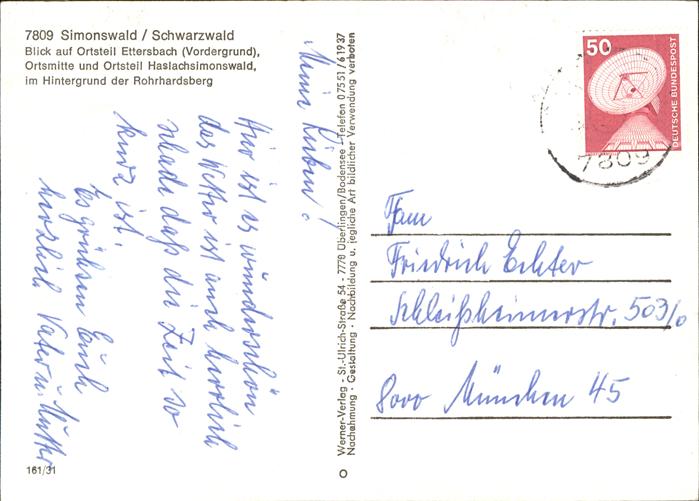 7809 Simonswald / Schwarzwald
Blick auf Ortsteil Ettersbach (Vordergrund),
Ortsmitte und Ortsteil Haslachsimonswald,
im Hintergrund der Rohrhardsberg
Meine Lieben!
Hier ist es wunderschön
das Wetter ist auch herrlich
schade daß die Zeit so
kurz ist.
Es grüßen Euch
herzlich Vater u. Mutter
161/31
Werner-Verlag - St.-Ulrich-Straße 54 - 7778 Überlingen/Bodensee - Telefon 07551/61937
Nachahmung - Gestaltung - Nachbildung u. jegliche Art bildlicher Verwendung verboten
50
DEUTSCHE BUNDESPOST
7809
Fam
Friedrich Echter
Schleißheimerstr. 503/0
8000 München 45